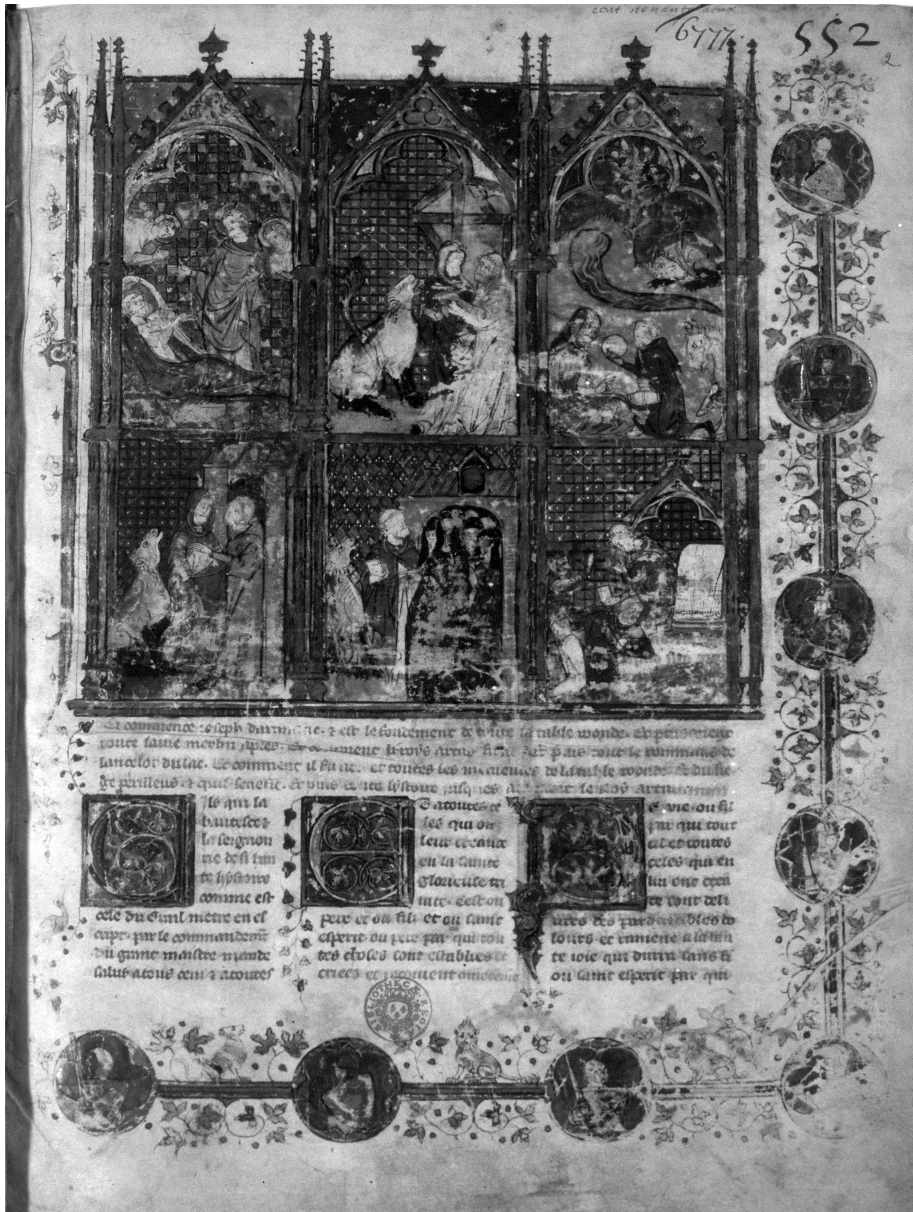 cent nonante deux
6777.
552
2
Ci commence ioseph darim & est le fondement de toute la table ronde. Et puis vient
toute la vie merlin apres. Et comment li roys artus fu Et puis tout le rommans de
lancelot du lac. Et comment il fu ne. et toutes les merueilles de la table ronde. & du sie
ge perilleus. & quil senefie. Et puis toute lystoire jusques a la mort le roy artu
Ils qui la
hautesce &
la seignou
rie de si hau
te hystoire
comme est
cele du Graal metre en es
cript. par le commandemt
du grant maistre mande
salus a tous ceus & a toutes
E a toutes ce
les qui ont
leur creance
en la sainte
glorieuse tri
nite. Cest ou
pere et ou fil. et ou saint
esperit ou pere par qui tou
tes choses sont establies et
criees et
E vie. ou fil
par qui tout
cil et toutes
celes qui en
lui ont creā
ce sont deli
ures des pardurables do
lours et ramene a la hau
te ioie qui durra sans fi
ou saint esperit par qui
BIBLIOTHECÆ REGIÆ